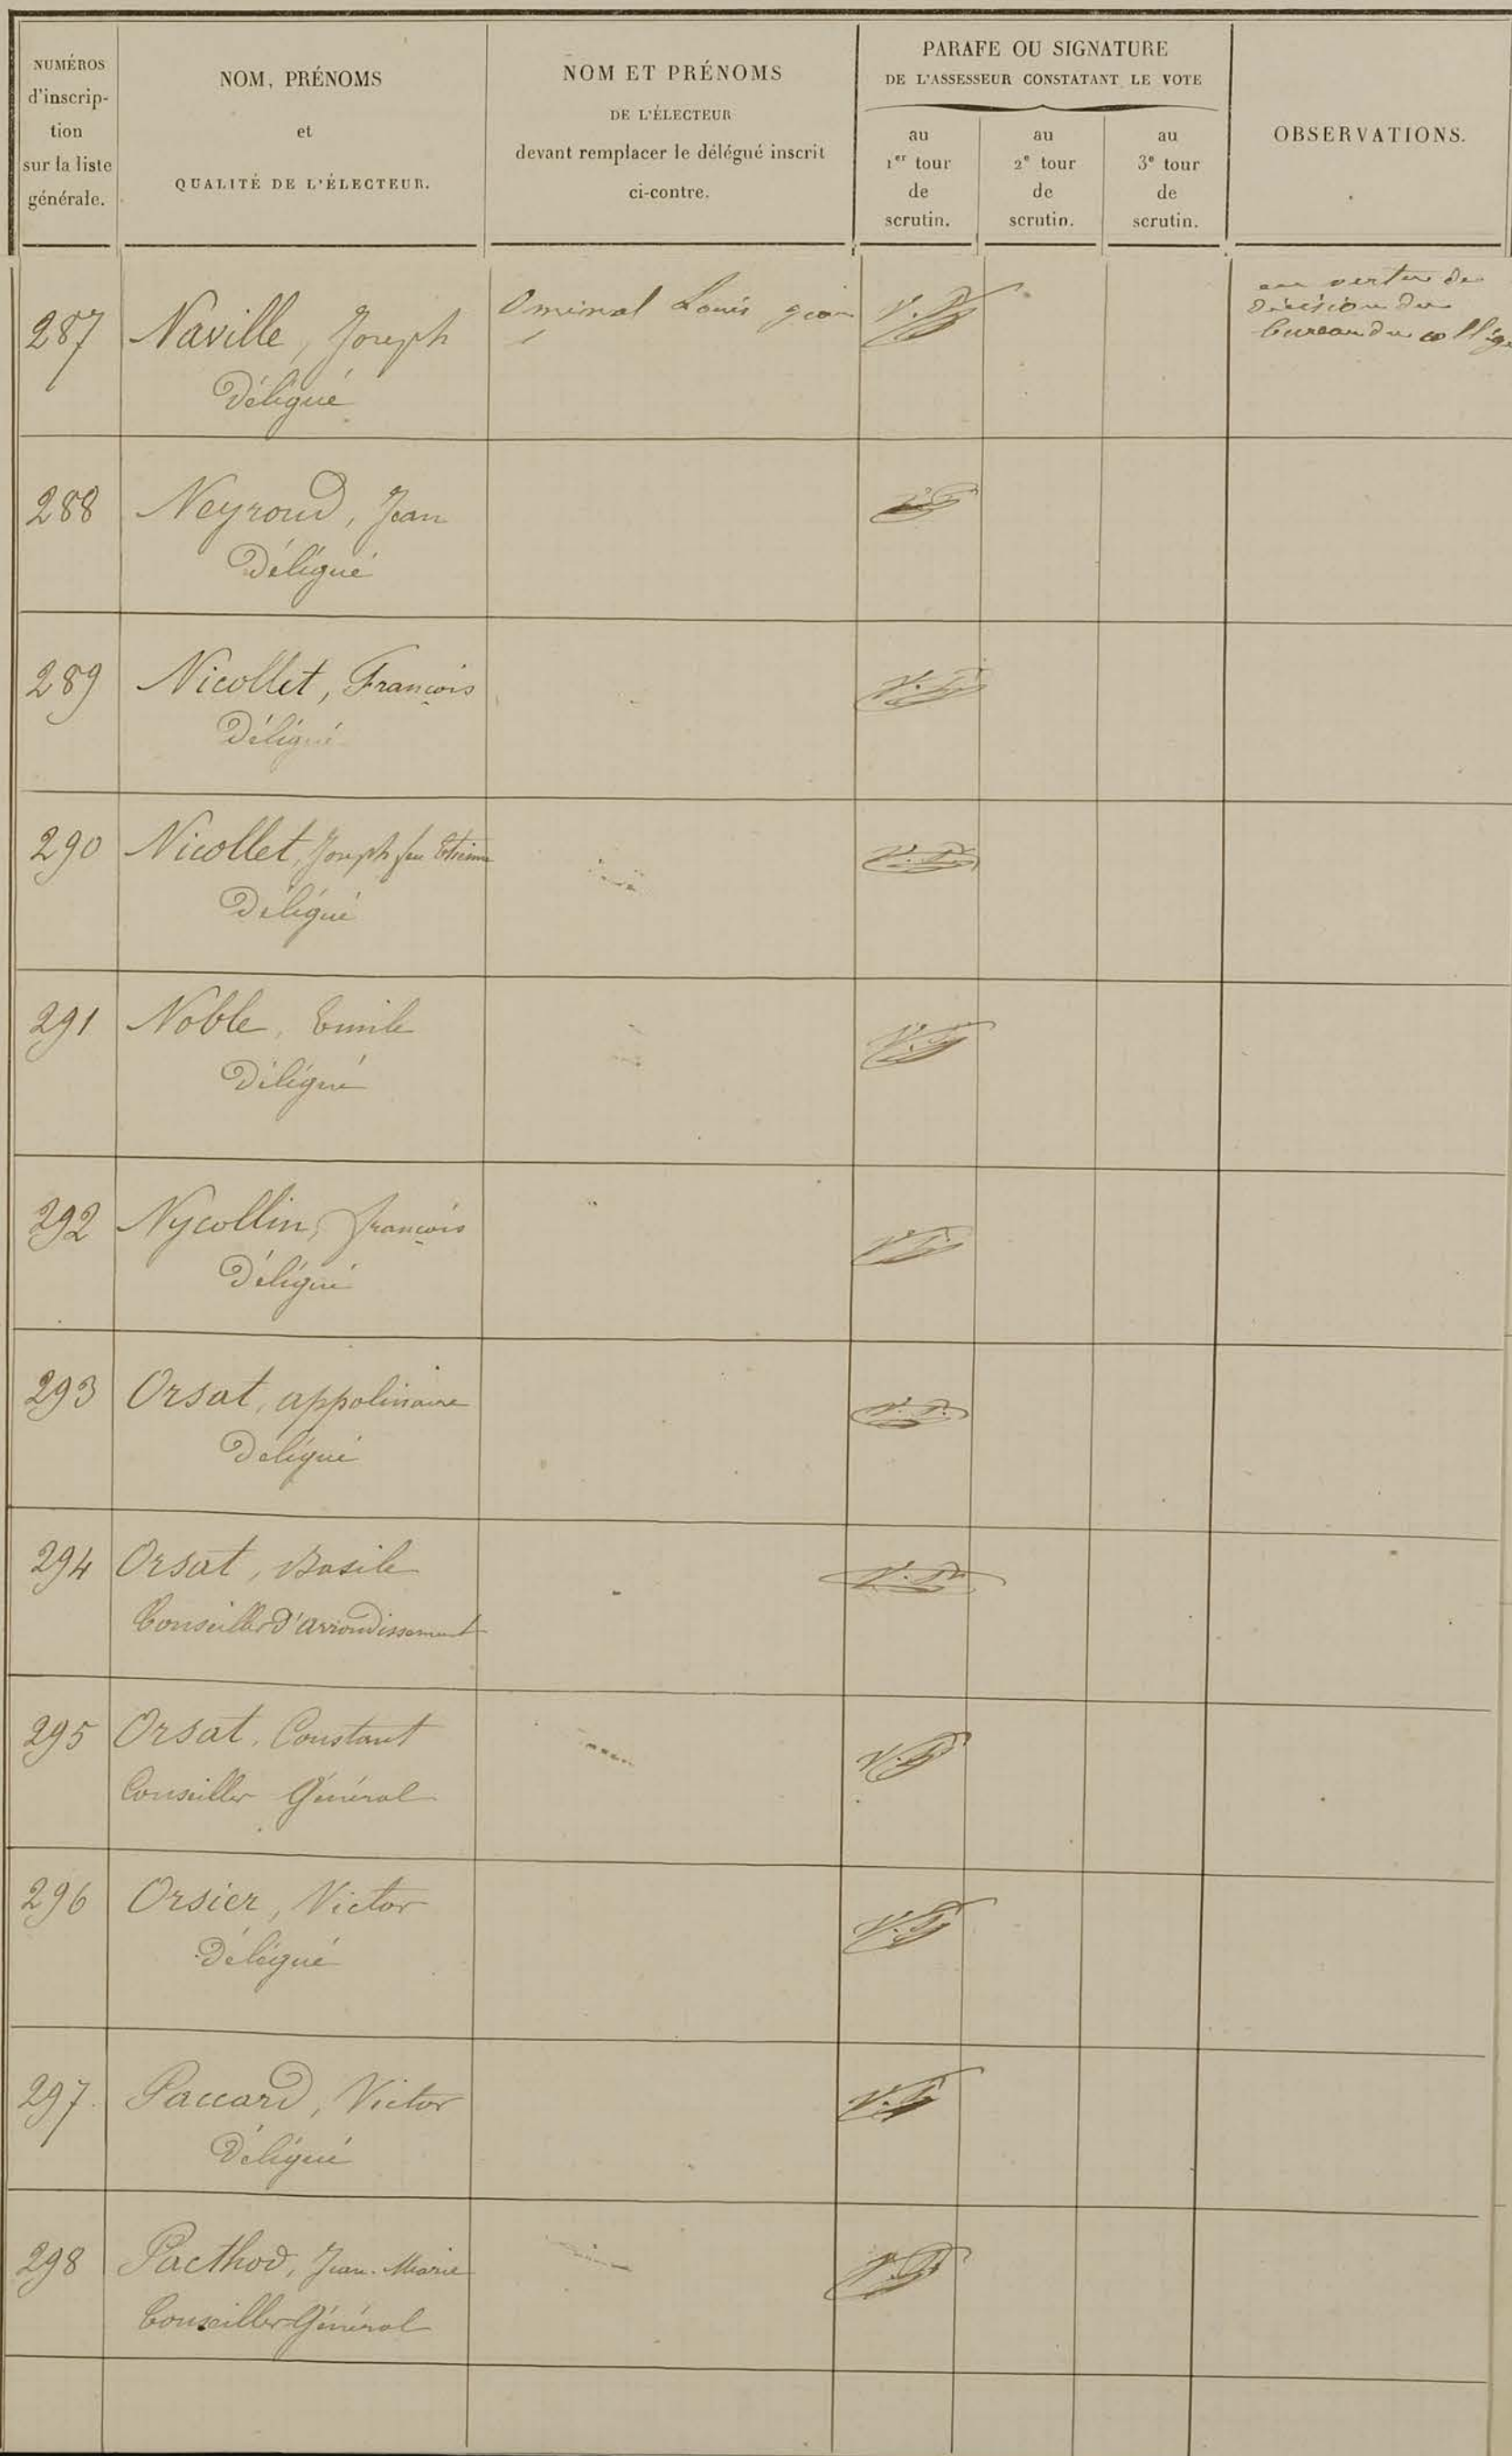 NUMÉROS
d'inscrip-
tion
sur la liste
générale.
NOM, PRÉNOMS
et
QUALITÉ DE L'ÉLECTEUR.
NOM ET PRÉNOMS
DE L'ÉLECTEUR
devant remplacer le délégué inscrit
ci-contre.
PARAFE OU SIGNATURE
DE L'ASSESSEUR CONSTATANT LE VOTE
au
1er tour
de
scrutin.
au
2e tour
de
scrutin.
au
3e tour
de
scrutin.
OBSERVATIONS.
287 Naville, Joseph
Délégué
Louis
en vertu de
décision du
bureau du collège
288 Neyroud, Jean
Délégué
289 Nicollet, François
Délégué
290 Nicollet, Joseph feu Etienne
Délégué
291 Noble, Emile
Délégué
292 Nycollin, François
Délégué
293 Orsat, appolinaire
Délégué
294 Orsat, Basile
Conseiller d'arrondissement
295 Orsat, Constant
Conseiller Général
296 Orsier, Victor
Délégué
297 Paccard, Victor
Délégué
298 Pacthod, Jean-Marie
Conseiller Général